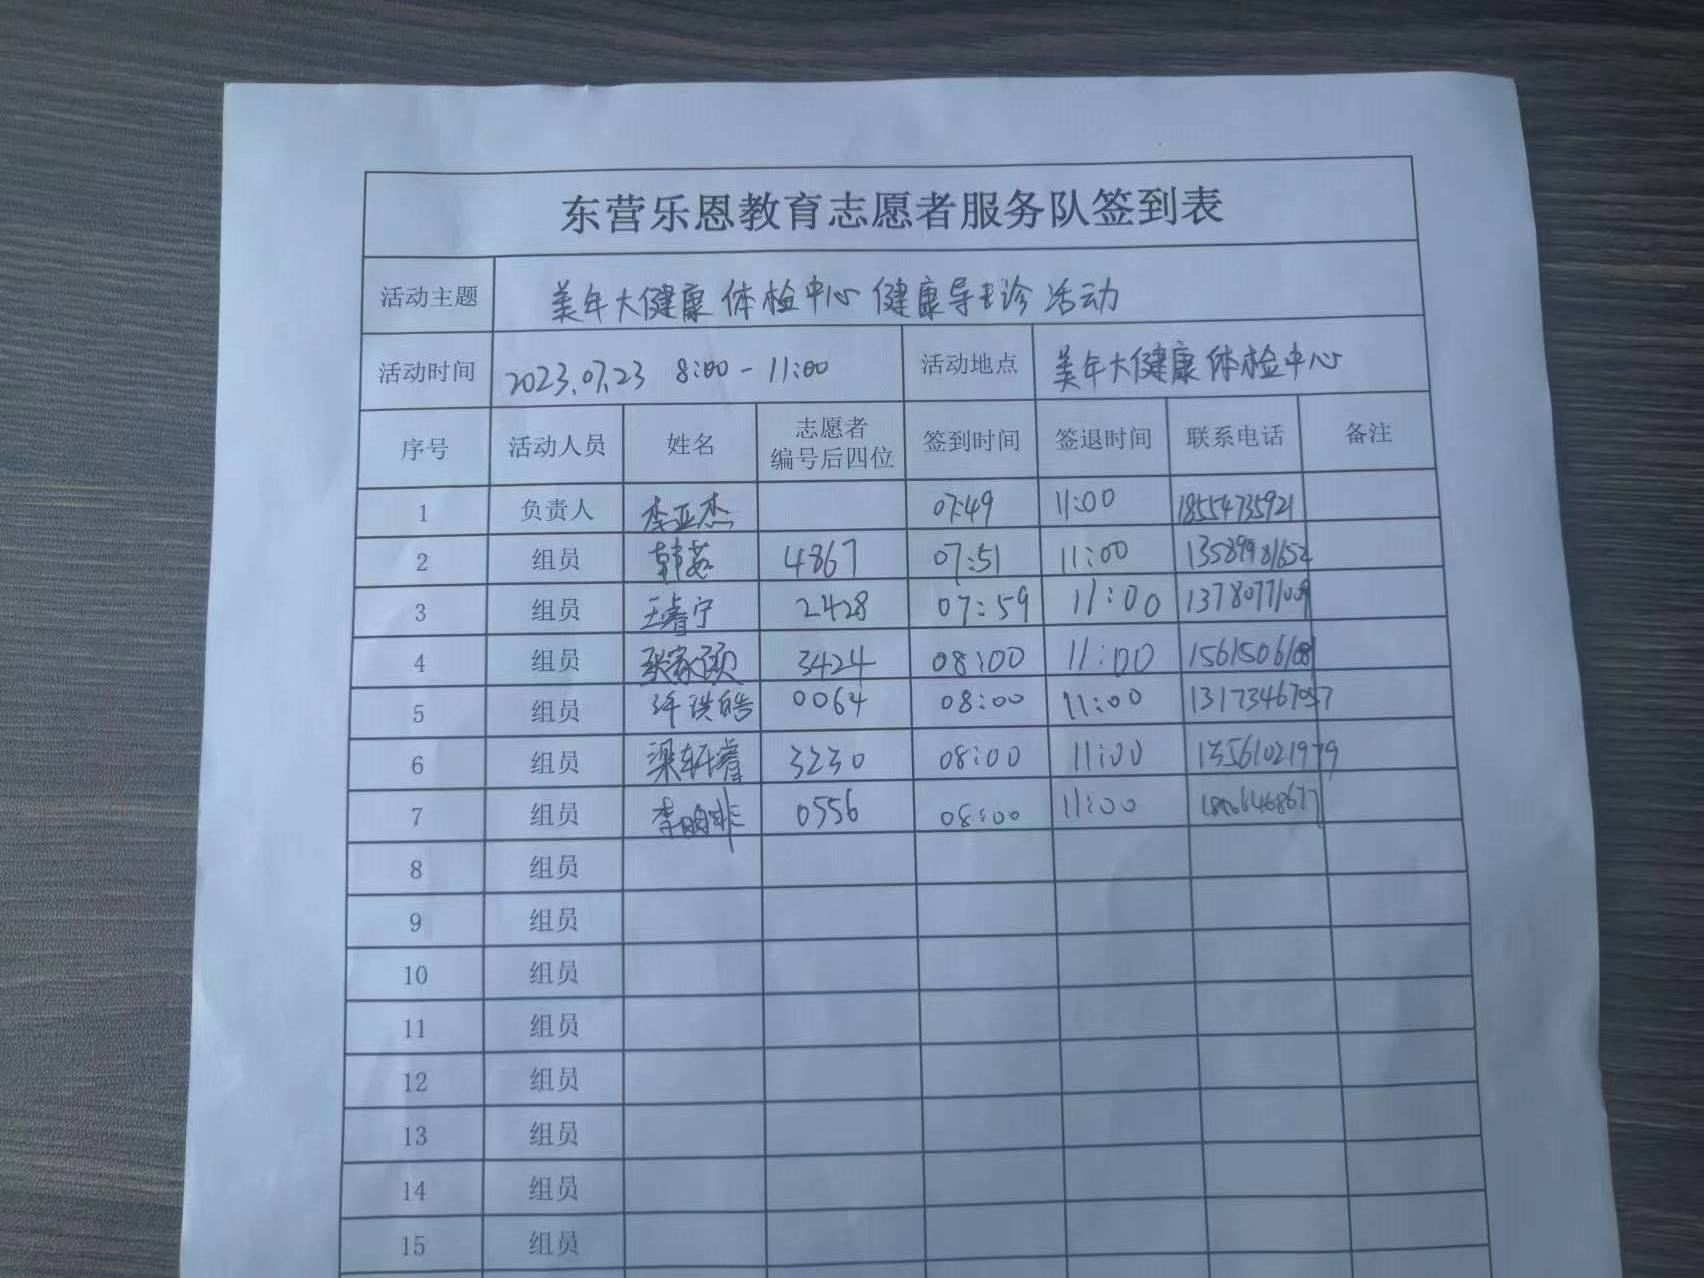 东营乐恩教育志愿者服务队签到表
活动主题 美年大健康体检中心健康导诊活动
活动时间 2023.07.23 8:00-11:00 活动地点 美年大健康体检中心
序号 活动人员 姓名 志愿者编号后四位 签到时间 签退时间 联系电话 备注
1 负责人 李亚杰 07:49 11:00 18554735921
2 组员 韩茹 4867 07:51 11:00 13589981652
3 组员 王睿宁 2428 07:59 11:00 13780771009
4 组员 张家硕 3424 08:00 11:00
5 组员 许洪皓 0064 08:00 11:00 13173467057
6 组员 梁轩睿 3230 08:00 11:00 13561021979
7 组员 0556 08:00 11:00
8 组员
9 组员
10 组员
11 组员
12 组员
13 组员
14 组员
15 组员